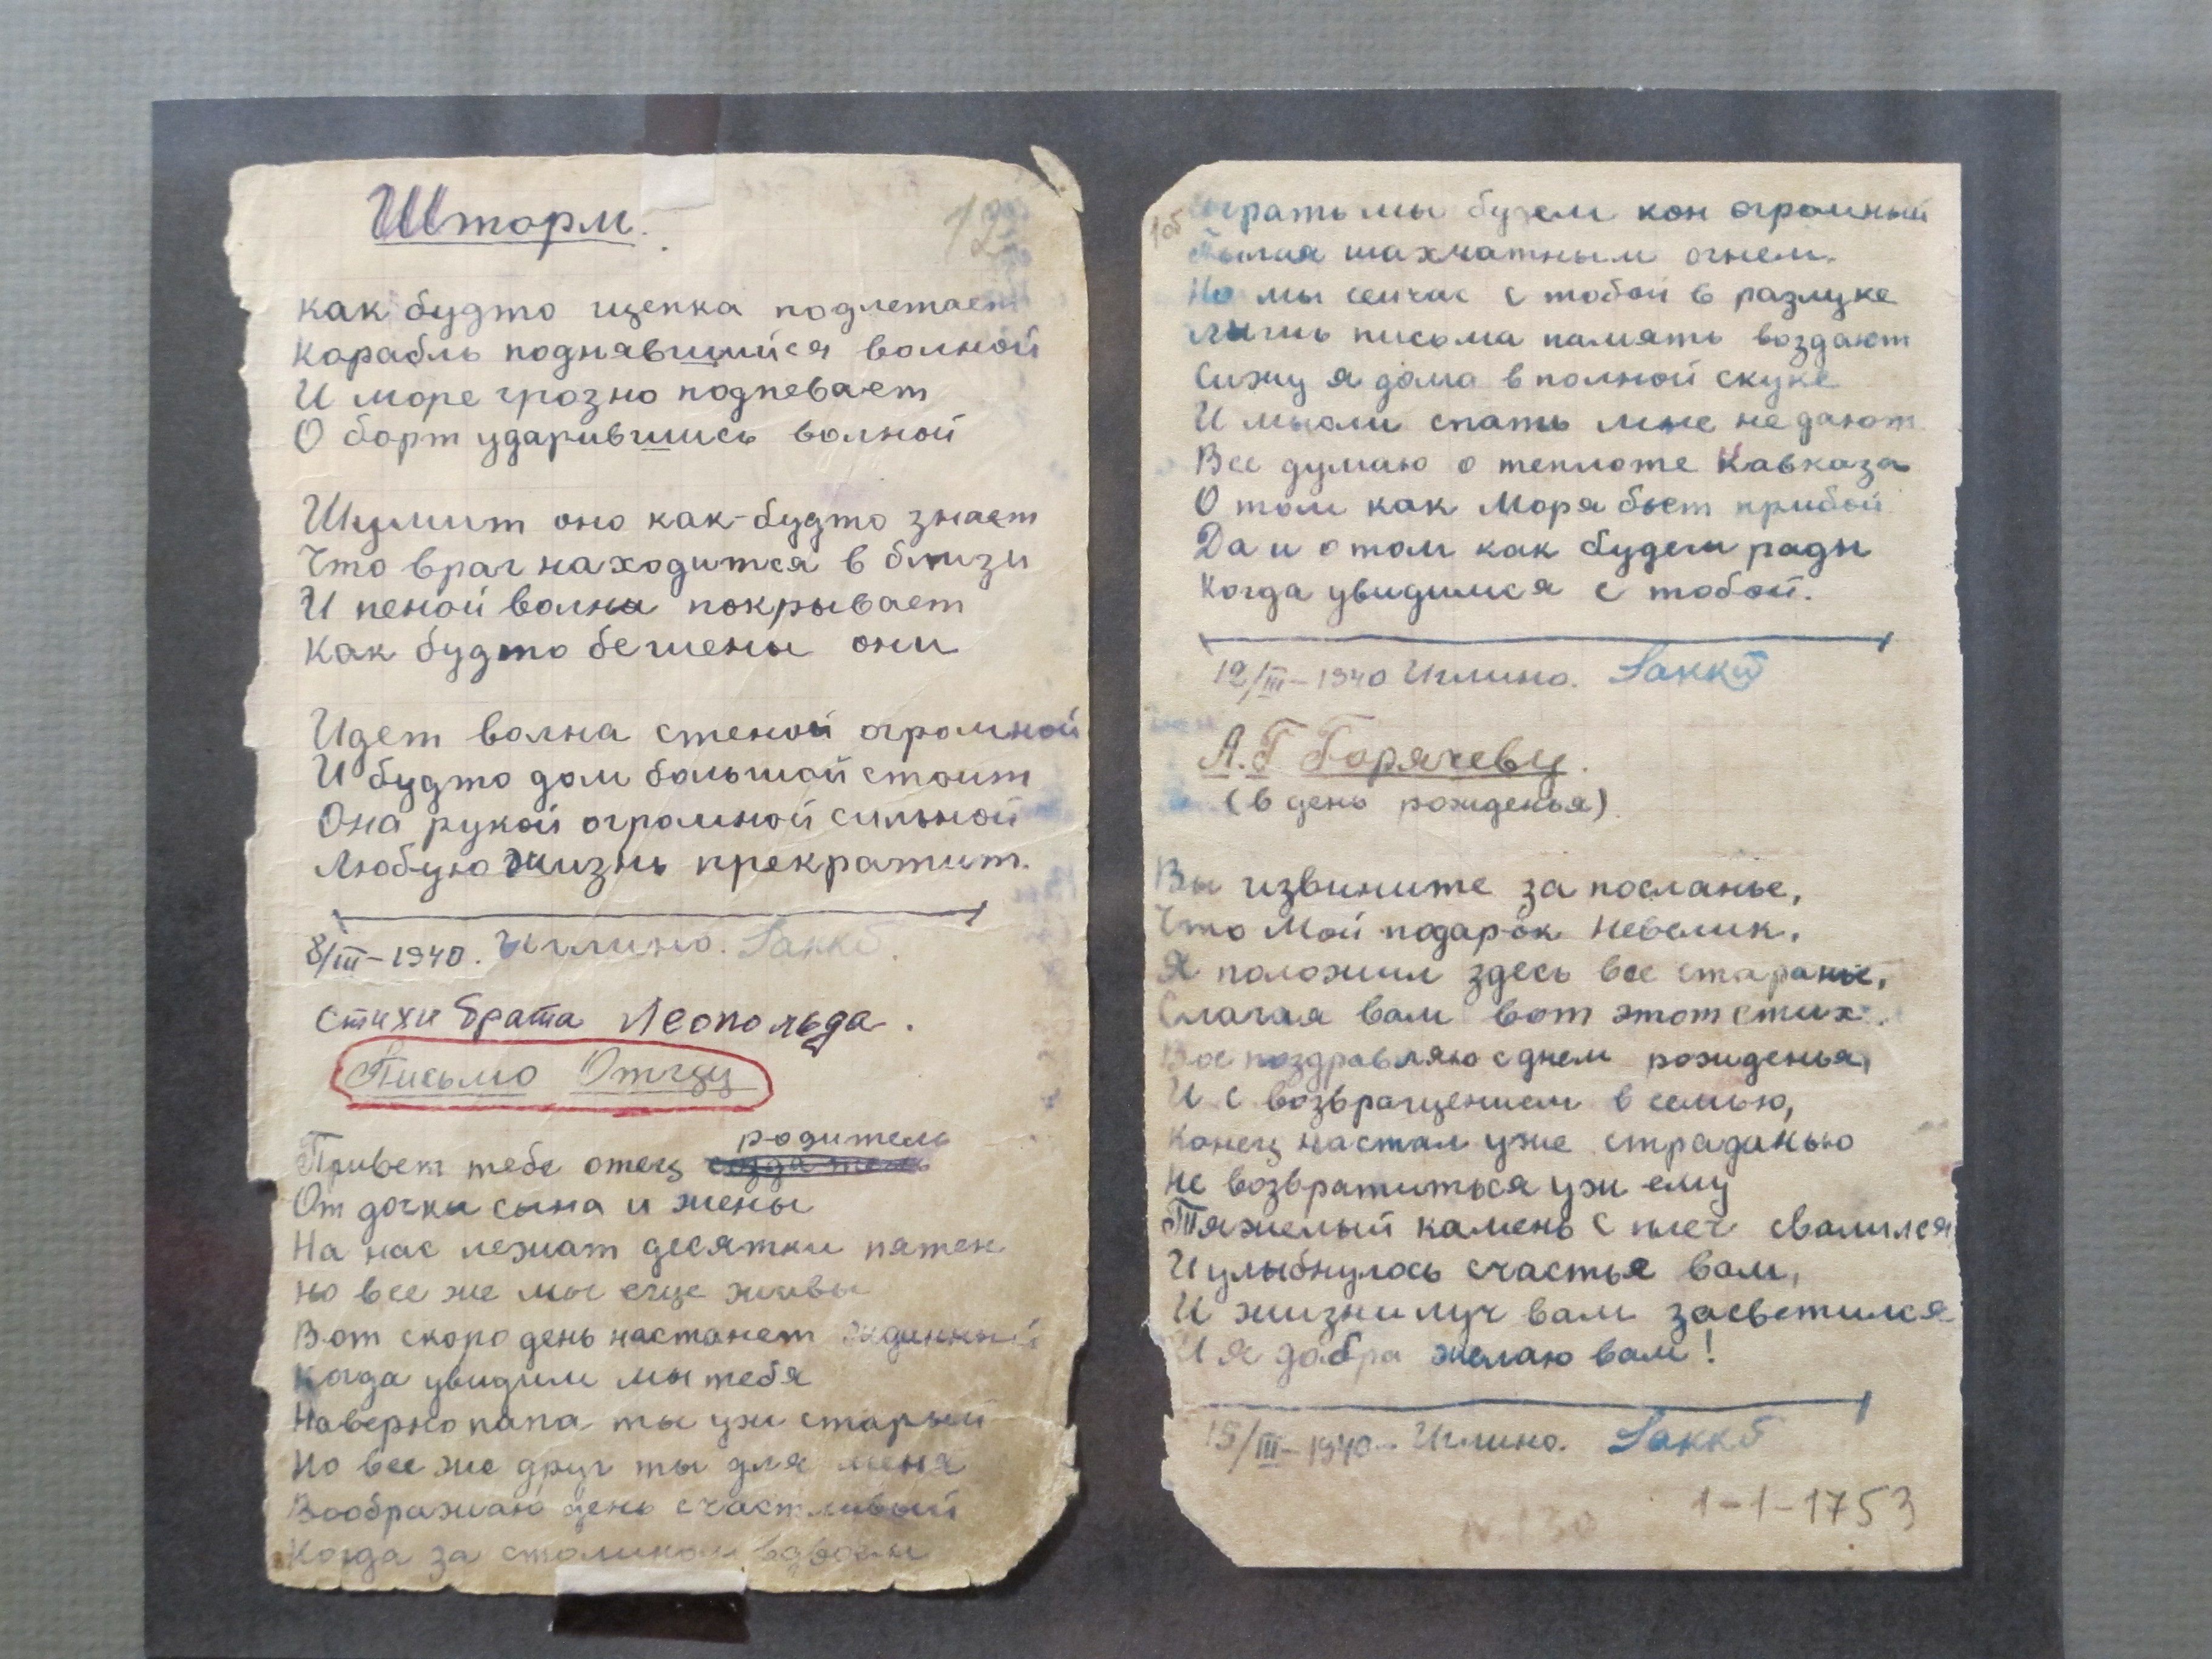 Шторм.
12
Как будто щепка подлетает
Корабль поднявшийся волной
И море грозно подпевает
О борт ударившись волной
Шумит оно как-будто знает
Что враг находится в близи
И пеной волны покрывает
Как будто бешены они
Идет волна стеной огромной
И будто дом большой стоит
Она рукой огромной сильной
Любую жизнь прекратит.
8/III-1940. Иглино.
Стихи брата Леопольда.
Письмо Отцу
родитель
Привет тебе отец создатель
От дочки сына и жены
На нас лежат десятки пятен
Но все же мы еще живы
Вот скоро день настанет жданный
Когда увидим мы тебя
Наверно папа ты уж старый
Но все же друг ты для меня
Воображаю день счастливый
Когда за столиком вдвоем
10б
Играть мы будем кон огромный
Пылая шахматным огнем.
Но мы сейчас с тобой в разлуке
Лишь письма память воздают
Сижу я дома в полной скуке
И мысли спать мне не дают
Все думаю о теплоте Кавказа
О том как Моря бьет прибой
Да и о том как будем рады
Когда увидимся с тобой.
12/III-1940 Иглино.
А.Г Горячеву.
(в день рожденья).
Вы извините за посланье,
Что Мой подарок невелик,
Я положил здесь все старанье,
Слагая вам вот этот стих.
Вас поздравляю с днем рожденья,
И с возвращением в семью,
Конец настал уже страданью
Не возвратиться уж ему
Тяжелый камень с плеч свалился
И улыбнулось счастье вам,
И жизни луч вам засветился
И я добра желаю вам!
15/III-1940. Иглино.
1-1-1753